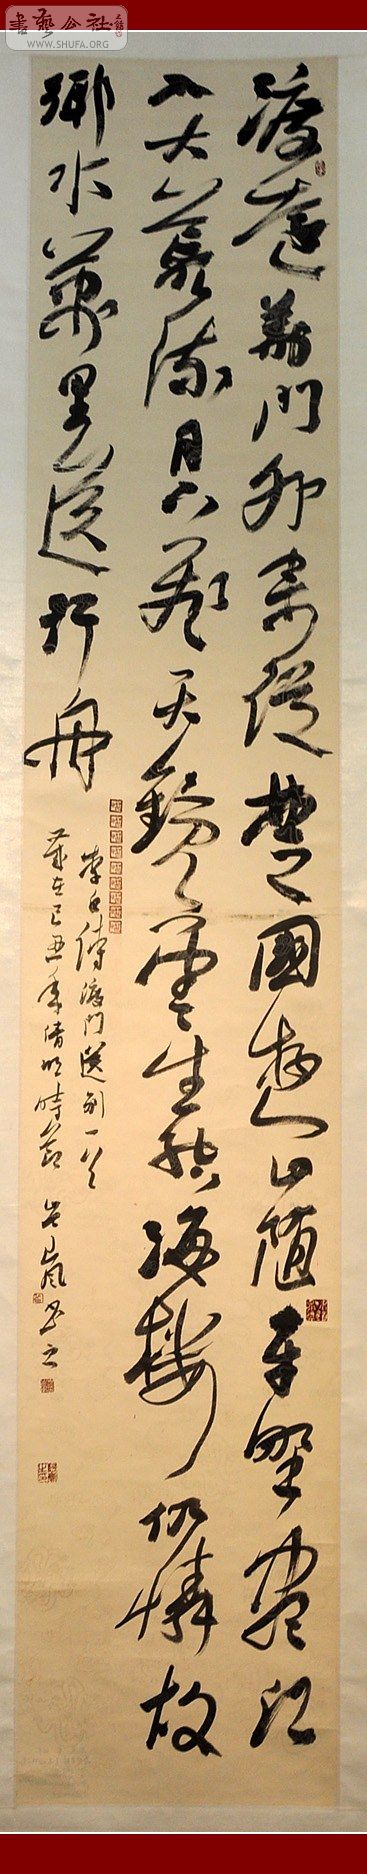 書藝公社
WWW.SHUFA.ORG
渡遠荊門外來從楚國遊山隨平野盡江
入大荒流月下飛天鏡雲生結海樓仍憐故
鄉水萬里送行舟
李白詩渡門送別一首
歲在己丑年清明時節 嵐書之